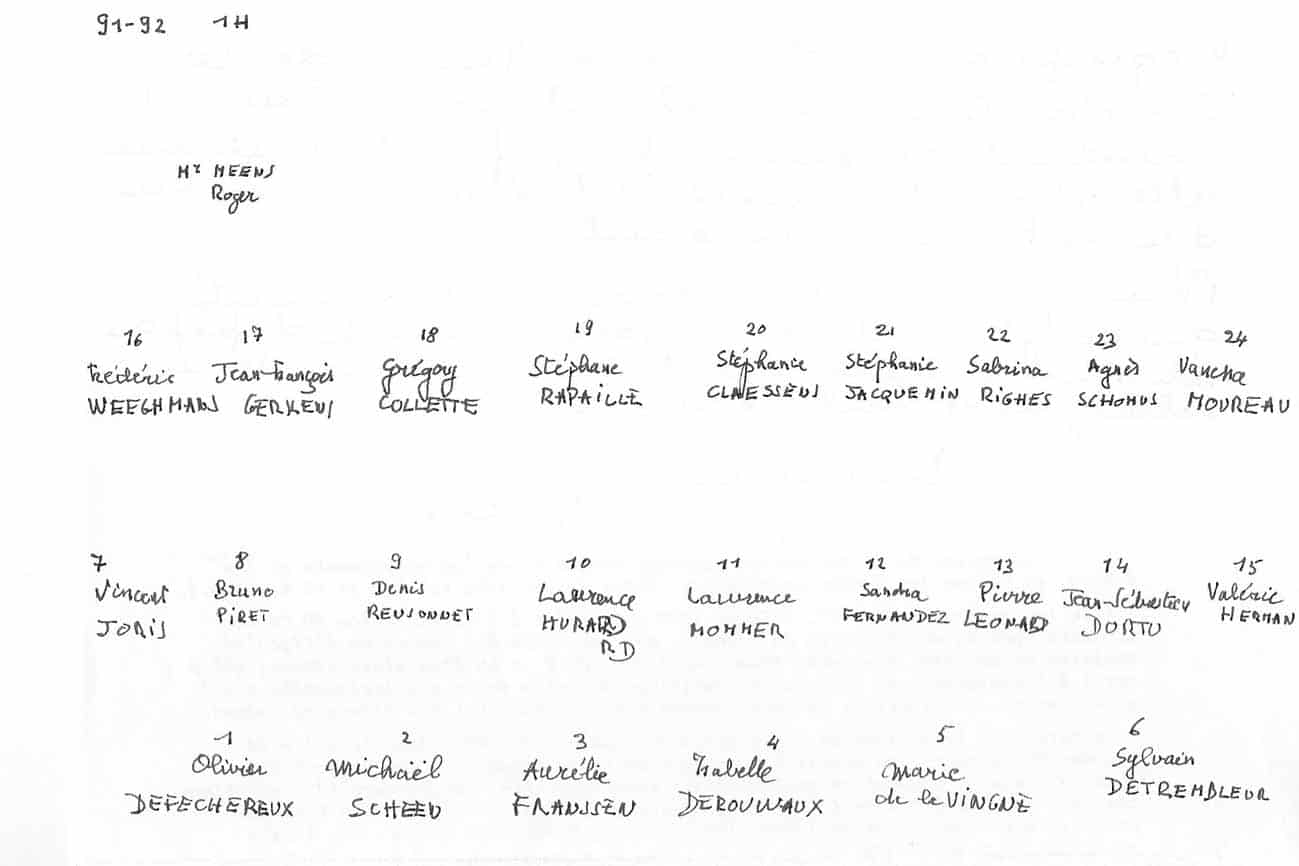 91-92 1H
Mr MEENS
Roger
16 17 18 19 20 21 22 23 24
Frédéric Jean-François Grégory Stéphane Stéphanie Stéphanie Sabrina Agnès Vanena
WEEGHMANS GERKENS COLLETTE RAPAILLE CLAESSENS JACQUEMIN RIGHES SCHOMUS MOUREAU
7 8 9 10 11 12 13 14 15
Vincent Bruno Denis Laurence Laurence Sandra Pierre Jean-Sébastien Valérie
JORIS PIRET REUSONNET HURARD MOMMER FERNANDEZ LEONARD DORTU HERMAN
RD
1 2 3 4 5 6
Olivier Michaël Aurélie Isabelle Marie Sylvain
DEFECHEREUX SCHEEN FRANSSEN DEROUWAUX de le VINGNE DETREMBLEUR